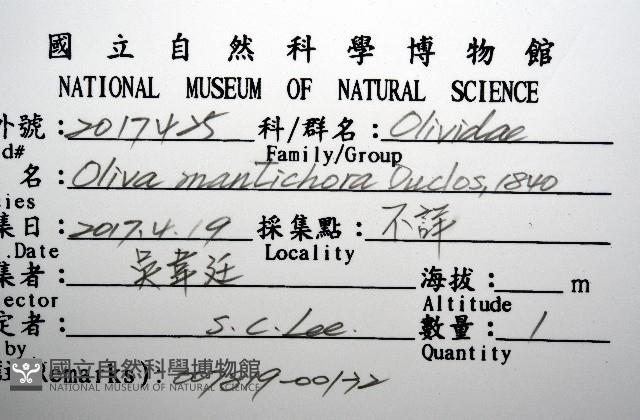 國立自然科學博物館
NATIONAL MUSEUM OF NATURAL SCIENCE
外號：2017425 科/群名：Olividae
d# Family/Group
名：Oliva mantichora Duclos, 1840
cies
集日：2017.4.19 採集點：不詳
.Date Locality
集者：吳韋廷 海拔： m
ector Altitude
定者：S.C.Lee. 數量：1
by Quantity
(Remarks):
國立自然科學博物館
NATIONAL MUSEUM OF NATURAL SCIENCE